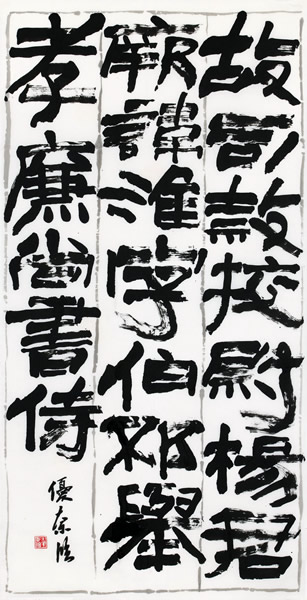 故司隸校尉楊君
厥諱淮字伯邳舉
孝廉尚書侍
優奈臨